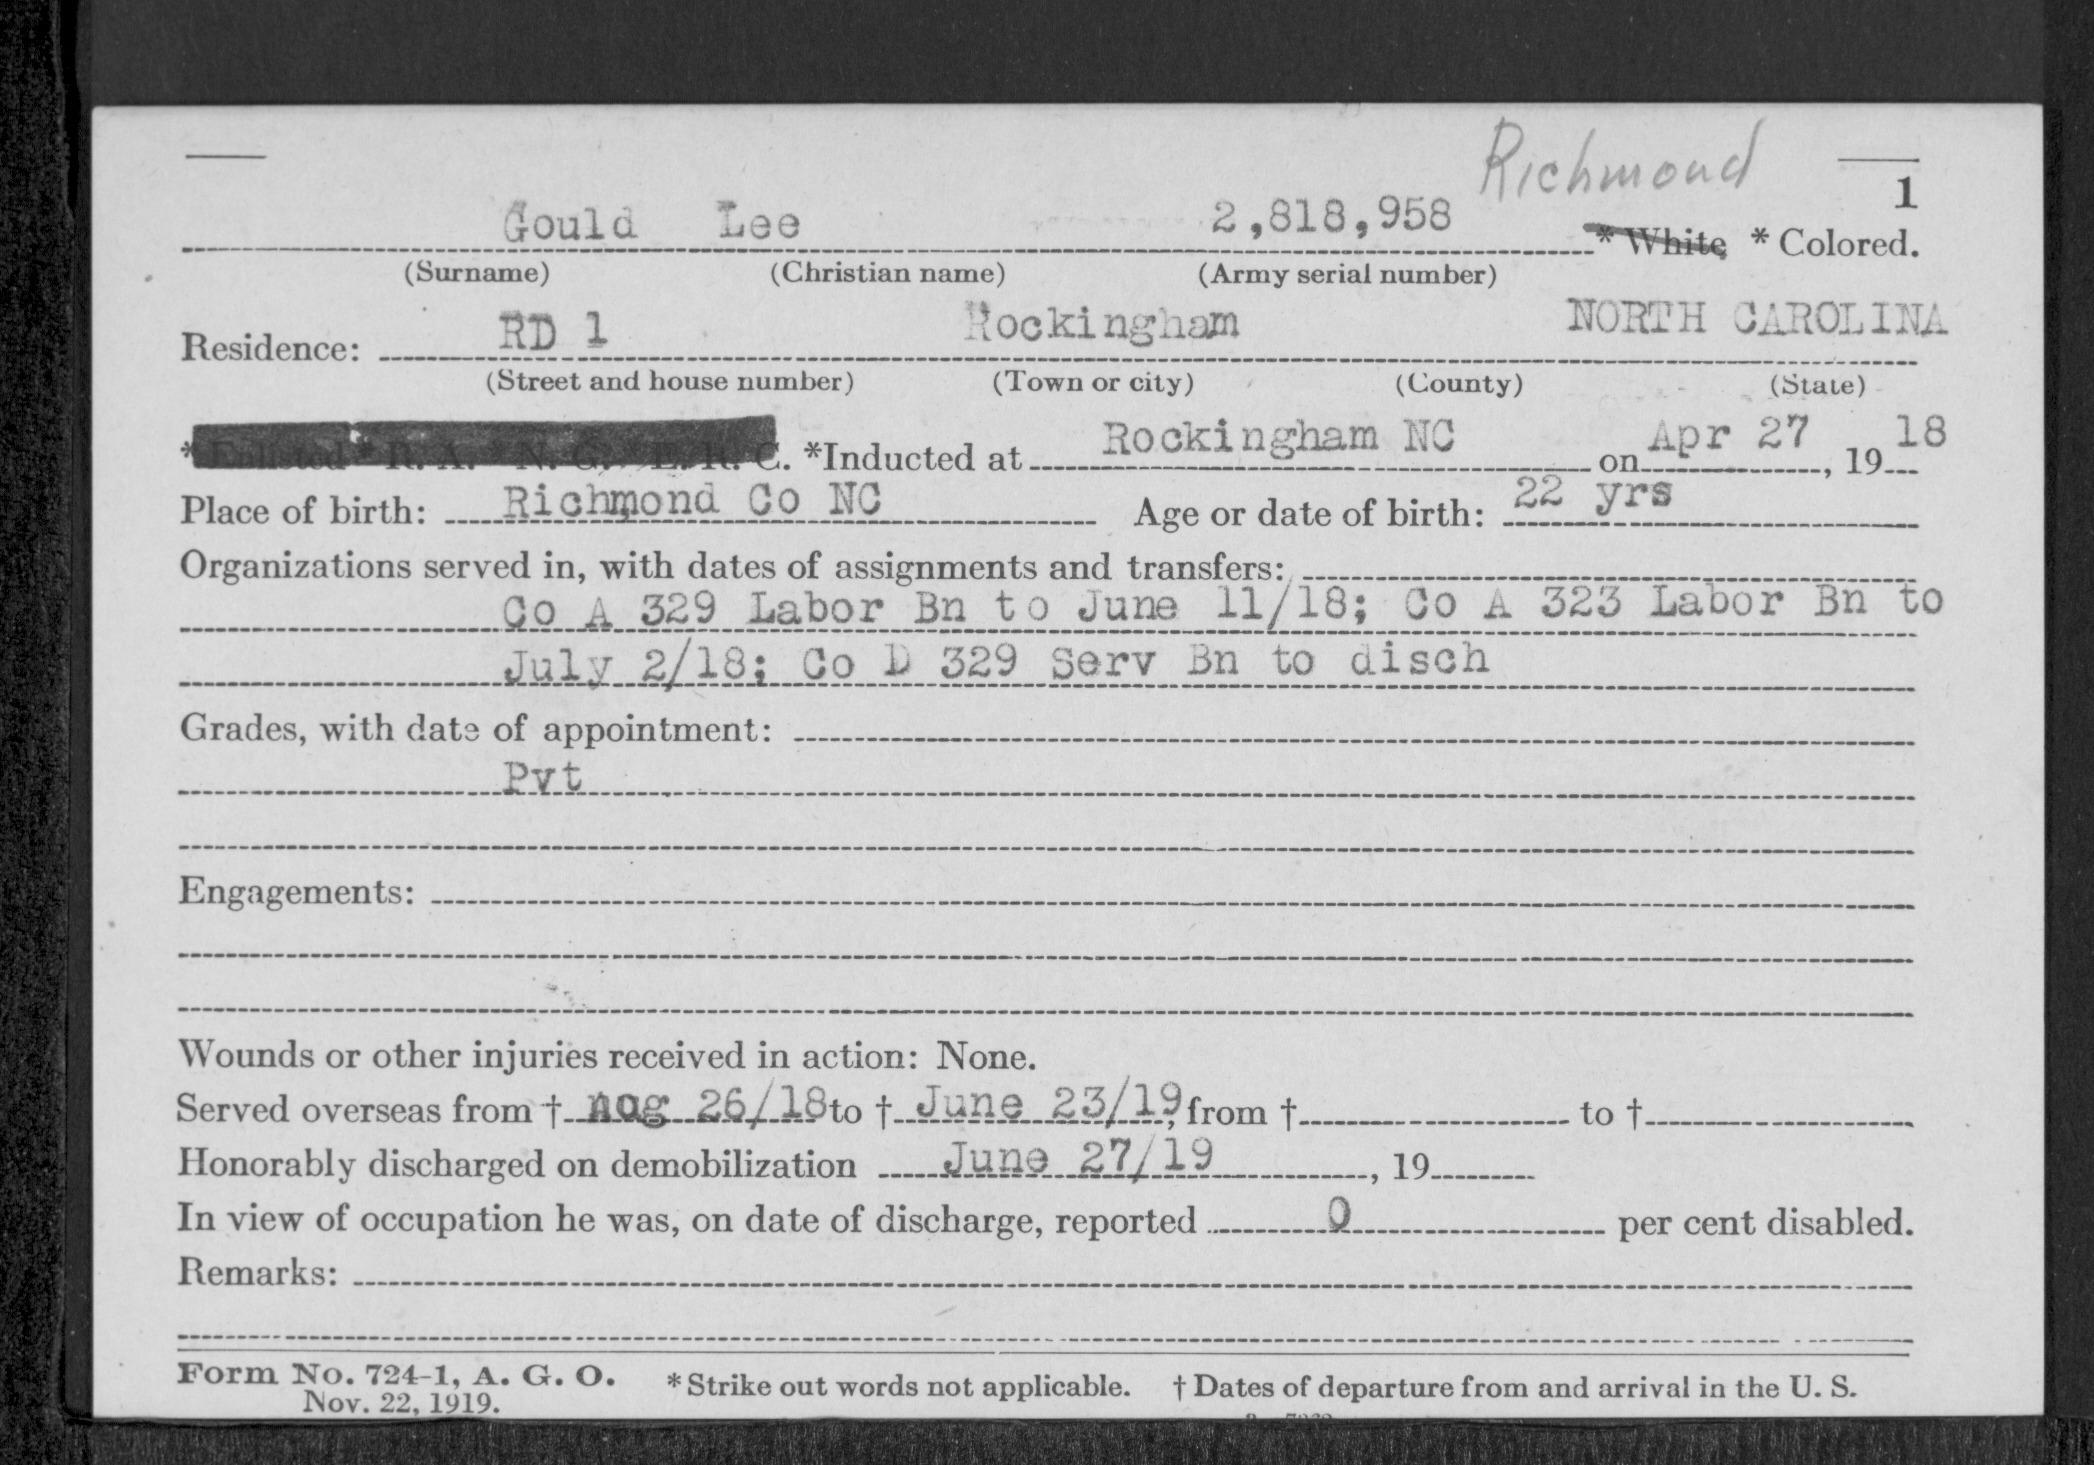 Richmond
1
Gould Lee 2,818,958 * White * Colored.
(Surname) (Christian name) (Army serial number)
Residence: RD 1 Rockingham NORTH CAROLINA
(Street and house number) (Town or city) (County) (State)
* Enlisted * R. A. * N. G. * E. R. C. *Inducted at Rockingham NC on Apr 27, 19 18
Place of birth: Richmond Co NC Age or date of birth: 22 yrs
Organizations served in, with dates of assignments and transfers:
Co A 329 Labor Bn to June 11/18; Co A 323 Labor Bn to
July 2/18; Co D 329 Serv Bn to disch
Grades, with date of appointment:
Pvt
Engagements:
Wounds or other injuries received in action: None.
Served overseas from † Aug 26/18 to † June 23/19, from † to †
Honorably discharged on demobilization June 27/19, 19
In view of occupation he was, on date of discharge, reported 0 per cent disabled.
Remarks:
Form No. 724-1, A. G. O. * Strike out words not applicable. † Dates of departure from and arrival in the U. S.
Nov. 22, 1919.